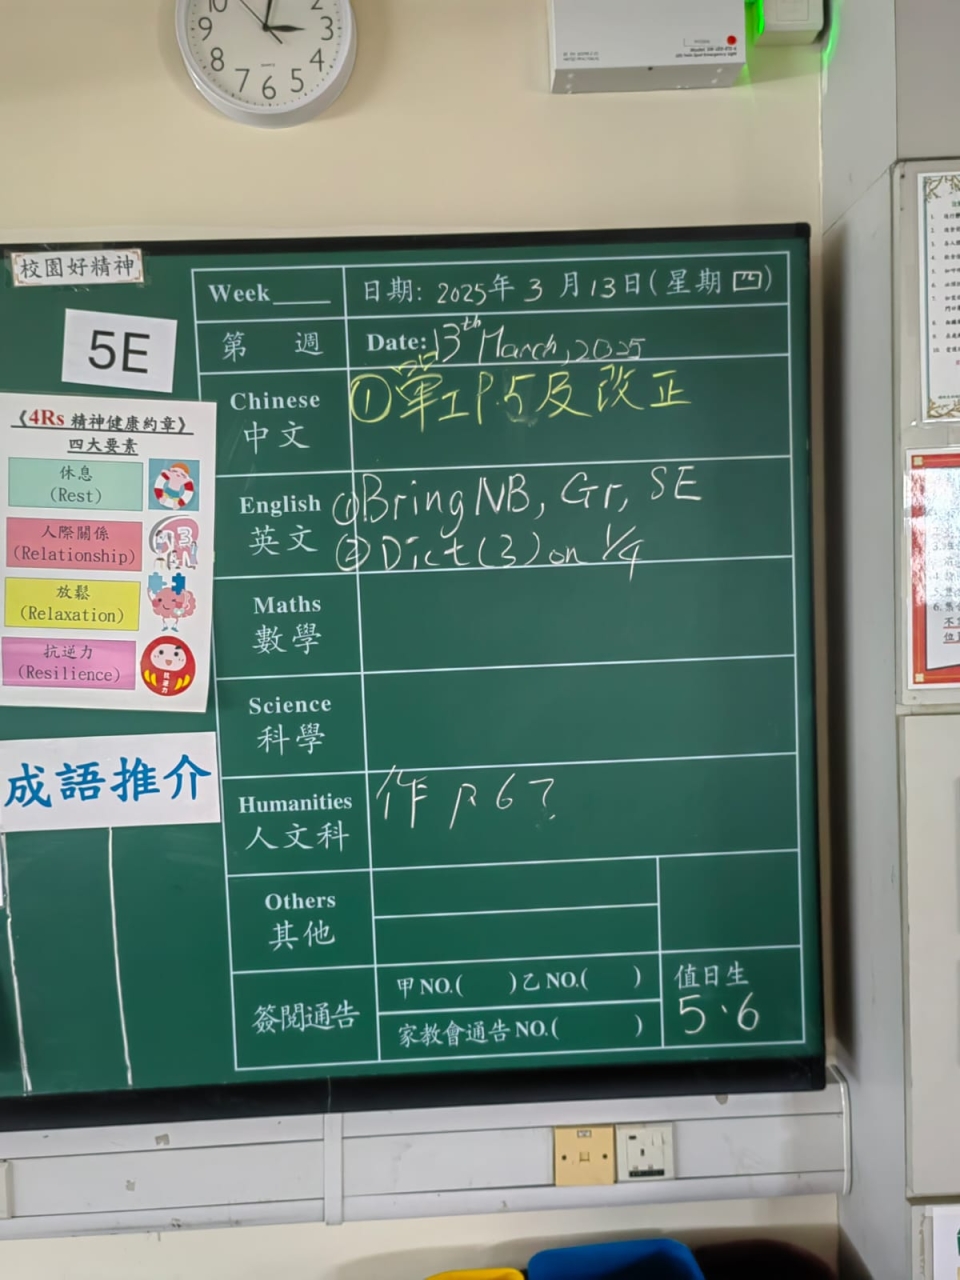 10
2
9
3
8
4
7
6
5
校園好精神
5E
《4Rs 精神健康約章》
四大要素
休息
(Rest)
人際關係
(Relationship)
放鬆
(Relaxation)
抗逆力
(Resilience)
成語推介
Week____
日期: 2025年 3 月 13日(星期四)
第 週
Date: 13th March, 2025
Chinese
中文
①單工P.5及改正
English
英文
①Bring NB, Gr, SE
②Dict(3) on 1/4
Maths
數學
Science
科學
Humanities
人文科
作 P6?
Others
其他
簽閱通告
甲NO.( )乙NO.( )
家教會通告NO.( )
值日生
5、6